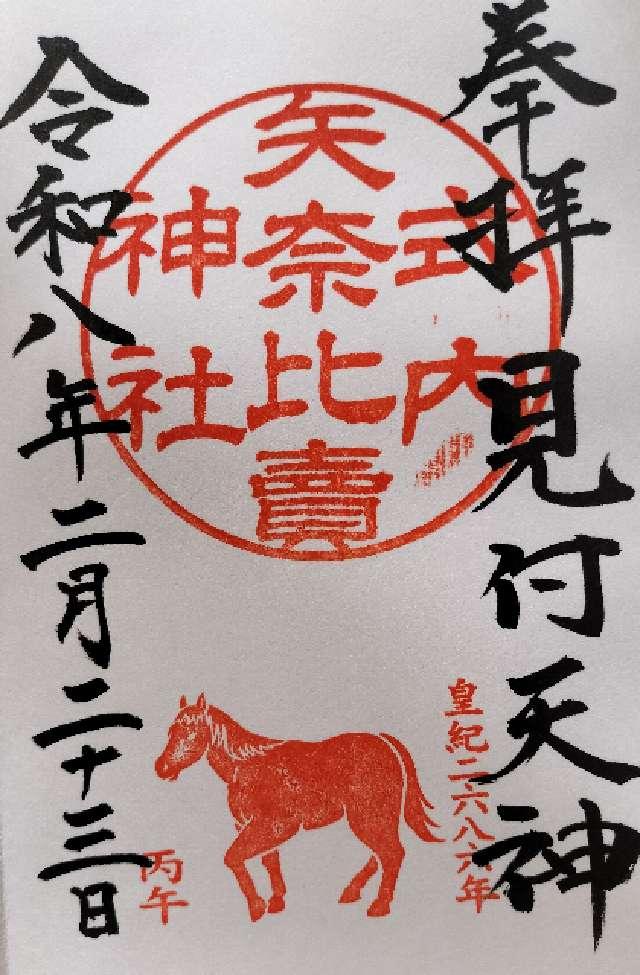 奉拝見付天神
式内
矢奈比賣
神社
皇紀二六八六年
丙午
令和八年二月二十三日